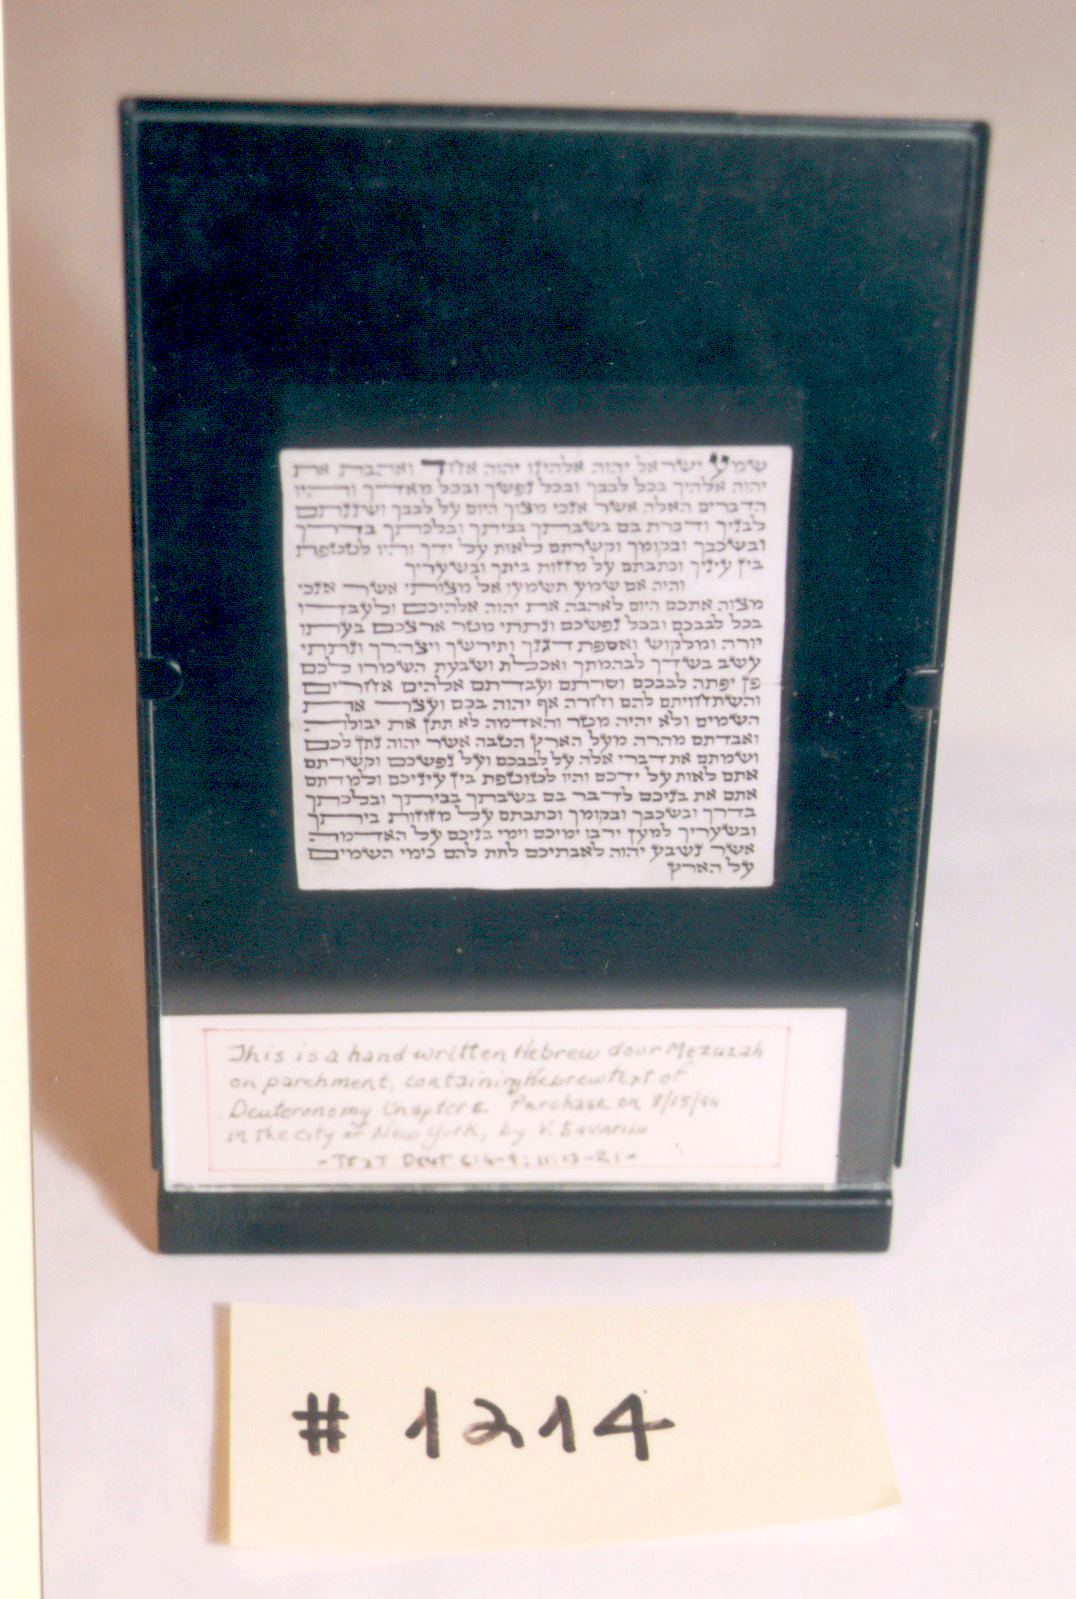 שמע ישראל יהוה אלהינו יהוה אחד ואהבת את
יהוה אלהיך בכל לבבך ובכל נפשך ובכל מאדך והיו
הדברים האלה אשר אנכי מצוך היום על לבבך ושננתם
לבניך ודברת בם בשבתך בביתך ובלכתך בדרך
ובשכבך ובקומך וקשרתם לאות על ידך והיו לטטפת
בין עיניך וכתבתם על מזזות ביתך ובשעריך
והיה אם שמע תשמעו אל מצותי אשר אנכי
מצוה אתכם היום לאהבה את יהוה אלהיכם ולעבדו
בכל לבבכם ובכל נפשכם ונתתי מטר ארצכם בעתו
יורה ומלקוש ואספת דגנך ותירשך ויצהרך ונתתי
עשב בשדך לבהמתך ואכלת ושבעת השמרו לכם
פן יפתה לבבכם וסרתם ועבדתם אלהים אחרים
והשתחויתם להם וחרה אף יהוה בכם ועצר את
השמים ולא יהיה מטר והאדמה לא תתן את יבולה
ואבדתם מהרה מעל הארץ הטבה אשר יהוה נתן לכם
ושמתם את דברי אלה על לבבכם ועל נפשכם וקשרתם
אתם לאות על ידכם והיו לטוטפת בין עיניכם ולמדתם
אתם את בניכם לדבר בם בשבתך בביתך ובלכתך
בדרך ובשכבך ובקומך וכתבתם על מזוזות ביתך
ובשעריך למען ירבו ימיכם וימי בניכם על האדמה
אשר נשבע יהוה לאבתיכם לתת להם כימי השמים
על הארץ
This is a hand written Hebrew door Mezuzah
on parchment, containing Hebrew text of
Deuteronomy Chapter 6. Purchase on 8/15/94
in the city of New York, by V.
- Text Deut 6:4-9; 11:13-21 -
# 1214